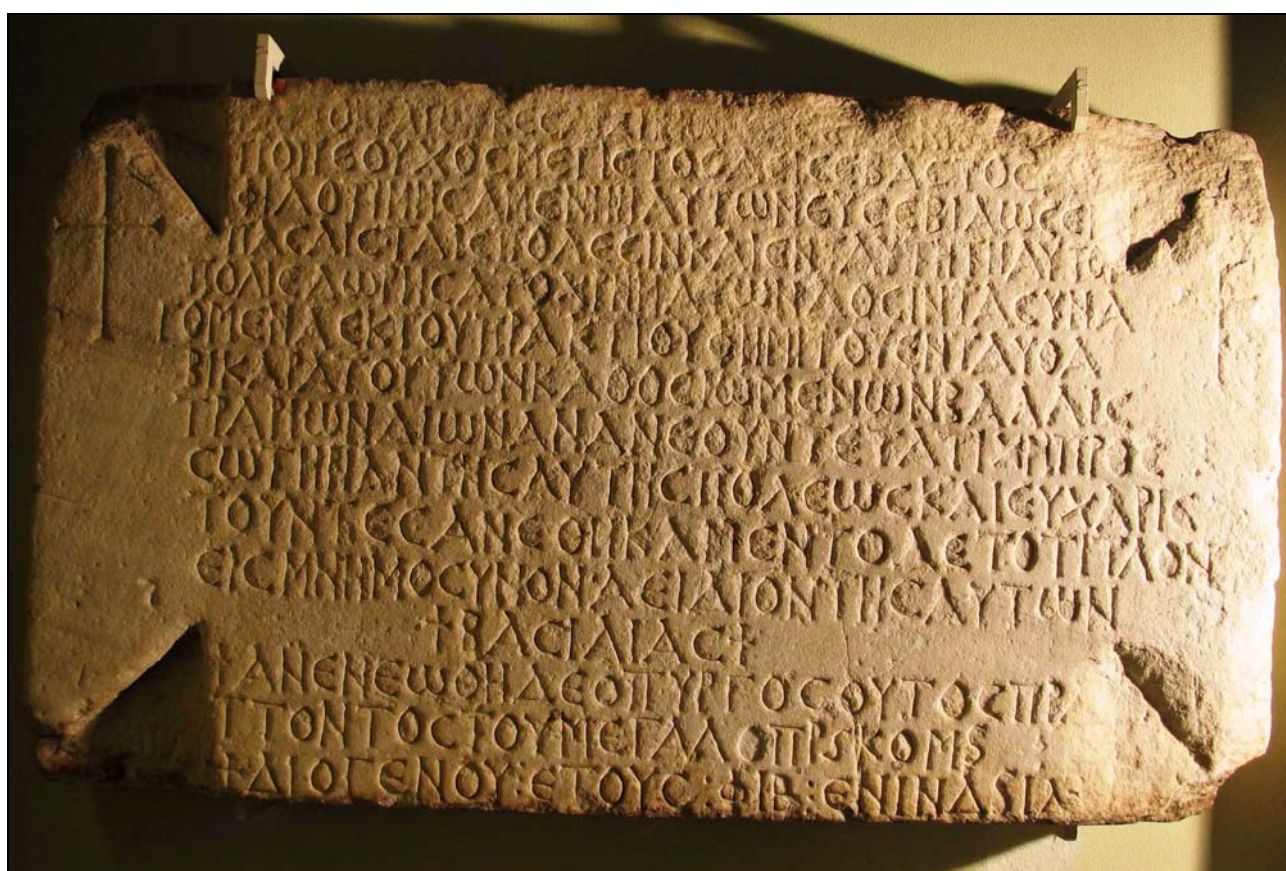 ΑΥΤΟΚΡΑΤωΡ ΚΕCΑΡ
ΤΡΟΠΕΟΥΧΟC ΜΕΓΙCΤΟC ΑΕΙCΕΒΑCΤΟC
ΦΙΛΟΤΙΜΗCΑΜΕΝΗ Η ΑΥΤωΝ ΕΥCΕΒΙΑ ωC ΕΝ
ΠΑCΑΙC ΤΑΙC ΠΟΛΕCΙΝ ΚΑΙ ΕΝ ΤΑΥΤΗ ΤΗ ΑΥΤΟΥ
ΠΟΛΙ ΕΔωΡΗCΑΤΟ ΧΡΗΜΑΤωΝ ΔΟCΙΝ ΤΑ CΥΝΑ
ΓΟΜΕΝΑ ΕΚ ΤΟΥ ΠΡΑΚΤΙΟΥ ΦΗΜΙ ΤΟΥ ΕΝΤΑΥΘΑ
ΒΙΚΑΡΑΤΟΥ ΤωΝ ΚΑΘΟCΙωΜΕΝωΝ ΒΑΛΛΙC
ΤΡΑΡΙωΝ ΔΙ ωΝ ΑΝΑΝΕΟΥΝΤΕ ΤΑ ΤΙΧΗ ΠΡΟC
CωΤΗΡΙΑΝ ΤΗC ΑΥΤΗC ΠΟΛΕωC ΚΑΙ ΕΥΧΑΡΙC
ΤΟΥΝΤΕC ΑΝΕΘΗΚΑΜΕΝ ΤΟΔΕ ΤΟ ΤΙΤΛΟΝ
ΕΙC ΜΝΗΜΟCΥΝΟΝ ΑΕΙΔΙΟΝ ΤΗC ΑΥΤωΝ
+ΒΑCΙΛΙΑC+
+ΑΝΕΝΕωΘΗ ΔΕ Ο ΠΥΡΓΟC ΟΥΤΟC ΠΡΑ
ΤΤΟΝΤΟC ΤΟΥ ΜΕΓΑΛΟΠΡS ΚΟΜS
+ΔΙΟΓΕΝΟΥ:ΕΤΟΥC:ΦΙΒ:ΕΝ ΙΝΔS ΙΑ